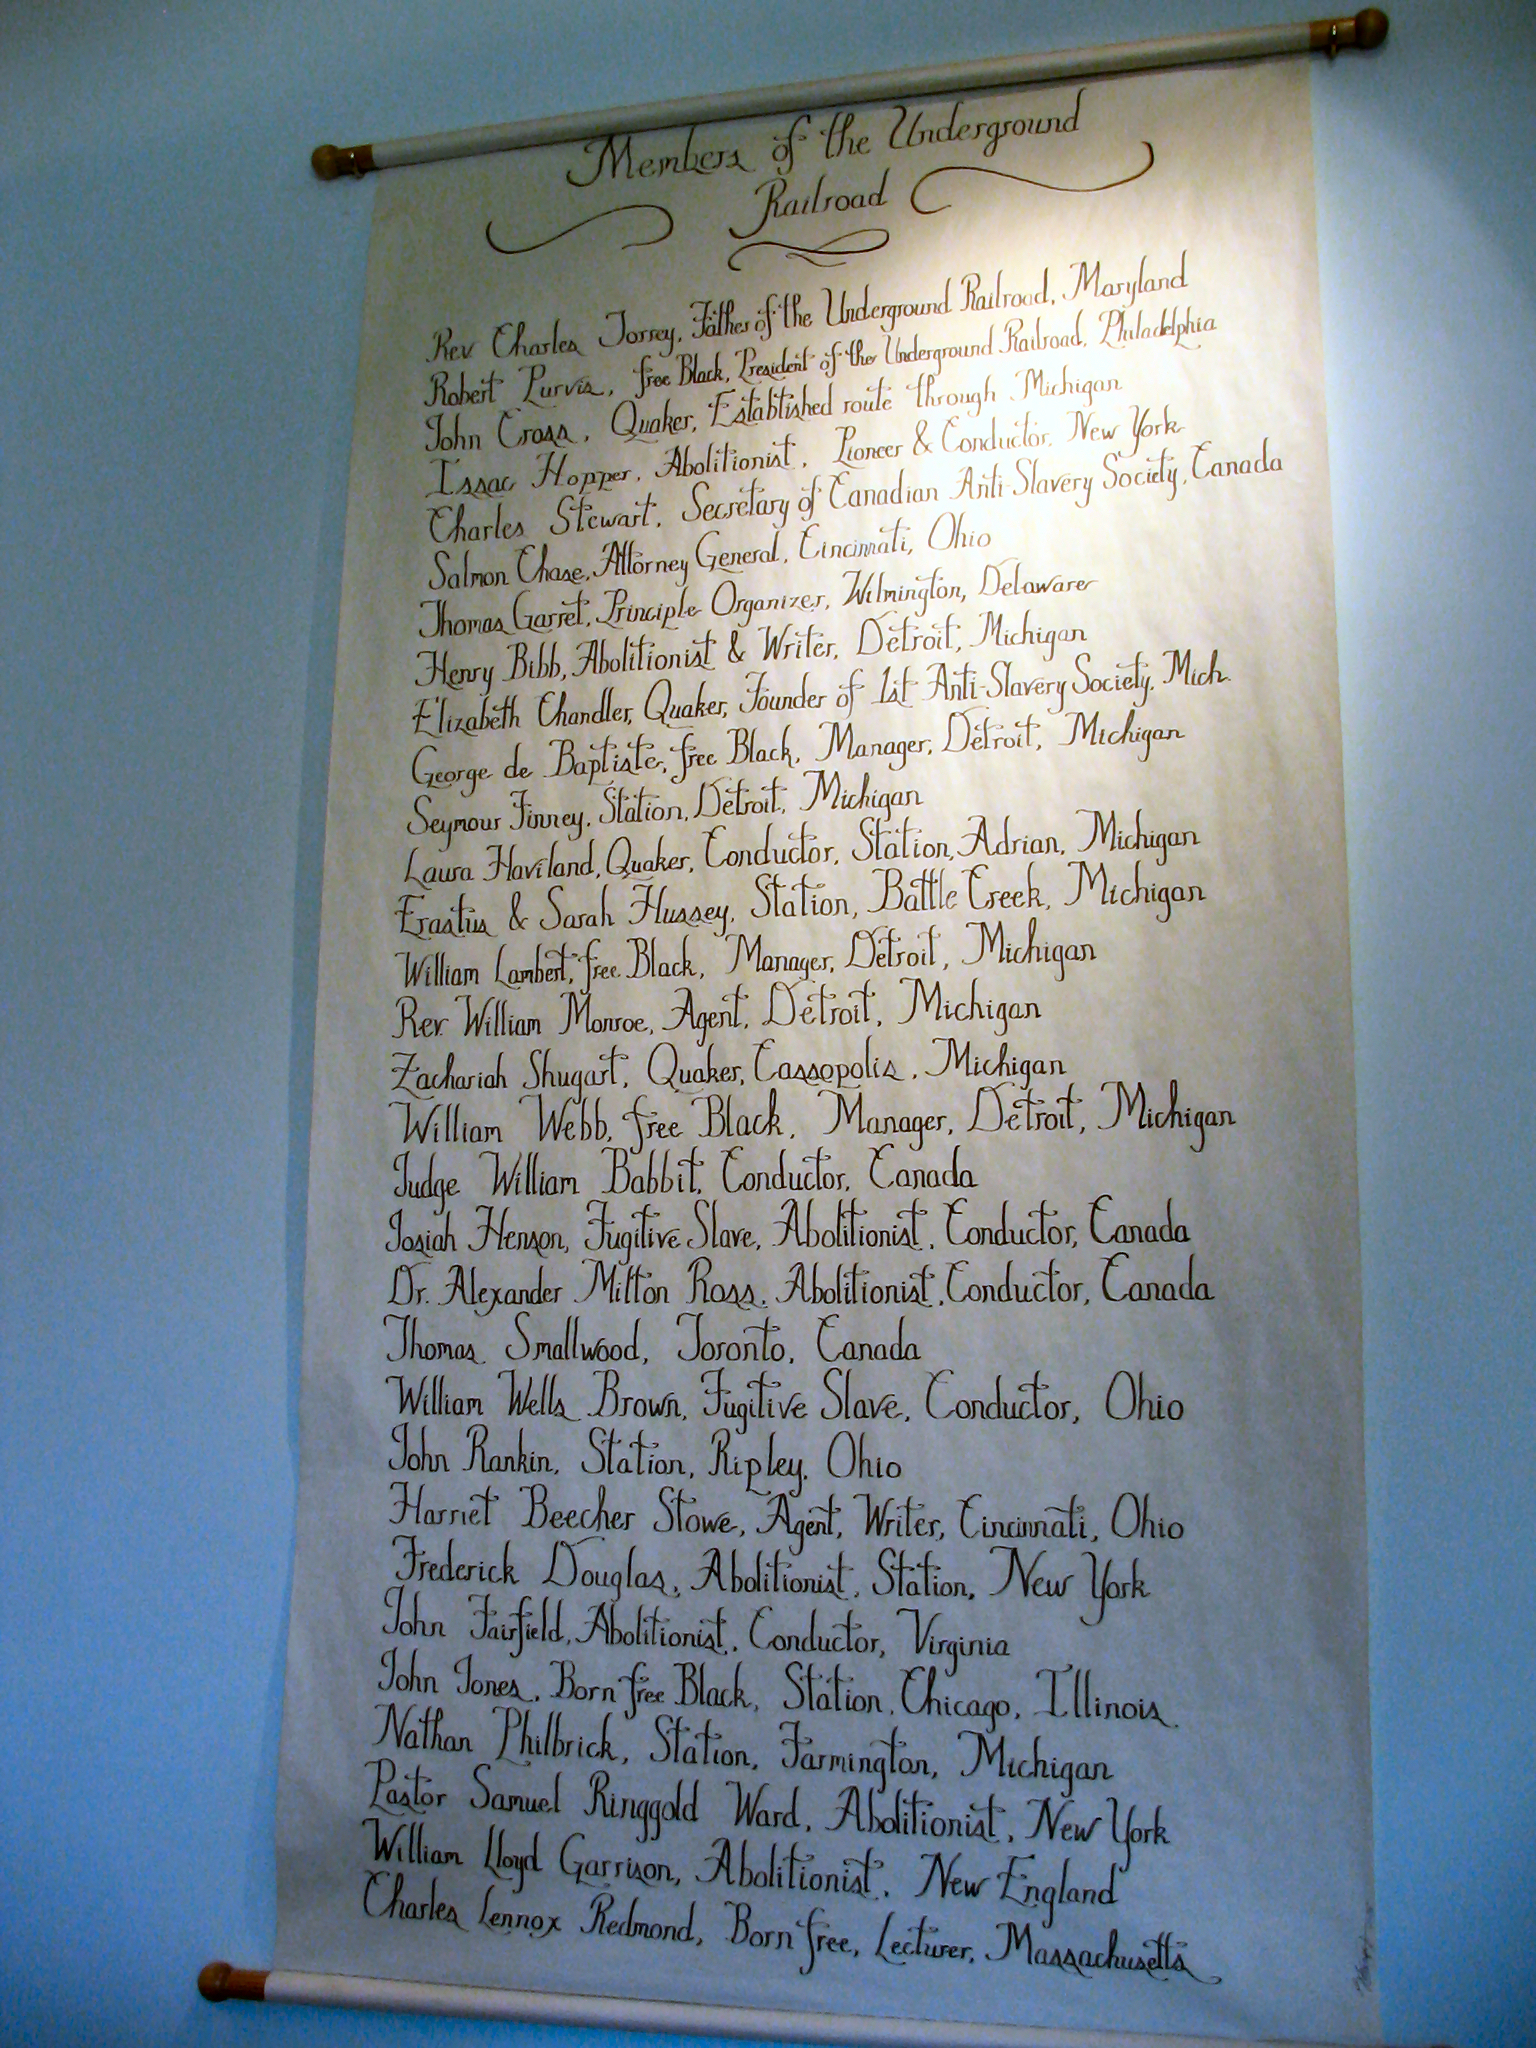 Members of the Underground
Railroad
Rev. Charles Torrey, Father of the Underground Railroad, Maryland
Robert Purvis, free Black, President of the Underground Railroad, Philadelphia
John Cross, Quaker, Established route through Michigan
Issac Hopper, Abolitionist, Pioneer & Conductor, New York
Charles Stewart, Secretary of Canadian Anti-Slavery Society, Canada
Salmon Chase, Attorney General, Cincinnati, Ohio
Thomas Garret, Principle Organizer, Wilmington, Delaware
Henry Bibb, Abolitionist & Writer, Detroit, Michigan
Elizabeth Chandler, Quaker, Founder of 1st Anti-Slavery Society, Mich.
George de Baptiste, free Black, Manager, Detroit, Michigan
Seymour Finney, Station, Detroit, Michigan
Laura Haviland, Quaker, Conductor, Station, Adrian, Michigan
Erastus & Sarah Hussey, Station, Battle Creek, Michigan
William Lambert, free Black, Manager, Detroit, Michigan
Rev. William Monroe, Agent, Detroit, Michigan
Zachariah Shugart, Quaker, Cassopolis, Michigan
William Webb, free Black, Manager, Detroit, Michigan
Judge William Babbit, Conductor, Canada
Josiah Henson, Fugitive Slave, Abolitionist, Conductor, Canada
Dr. Alexander Milton Ross, Abolitionist, Conductor, Canada
Thomas Smallwood, Toronto, Canada
William Wells Brown, Fugitive Slave, Conductor, Ohio
John Rankin, Station, Ripley, Ohio
Harriet Beecher Stowe, Agent, Writer, Cincinnati, Ohio
Frederick Douglas, Abolitionist, Station, New York
John Fairfield, Abolitionist, Conductor, Virginia
John Jones, Born free Black, Station, Chicago, Illinois.
Nathan Philbrick, Station, Farmington, Michigan
Pastor Samuel Ringgold Ward, Abolitionist, New York
William Lloyd Garrison, Abolitionist, New England
Charles Lennox Redmond, Born free, Lecturer, Massachusetts